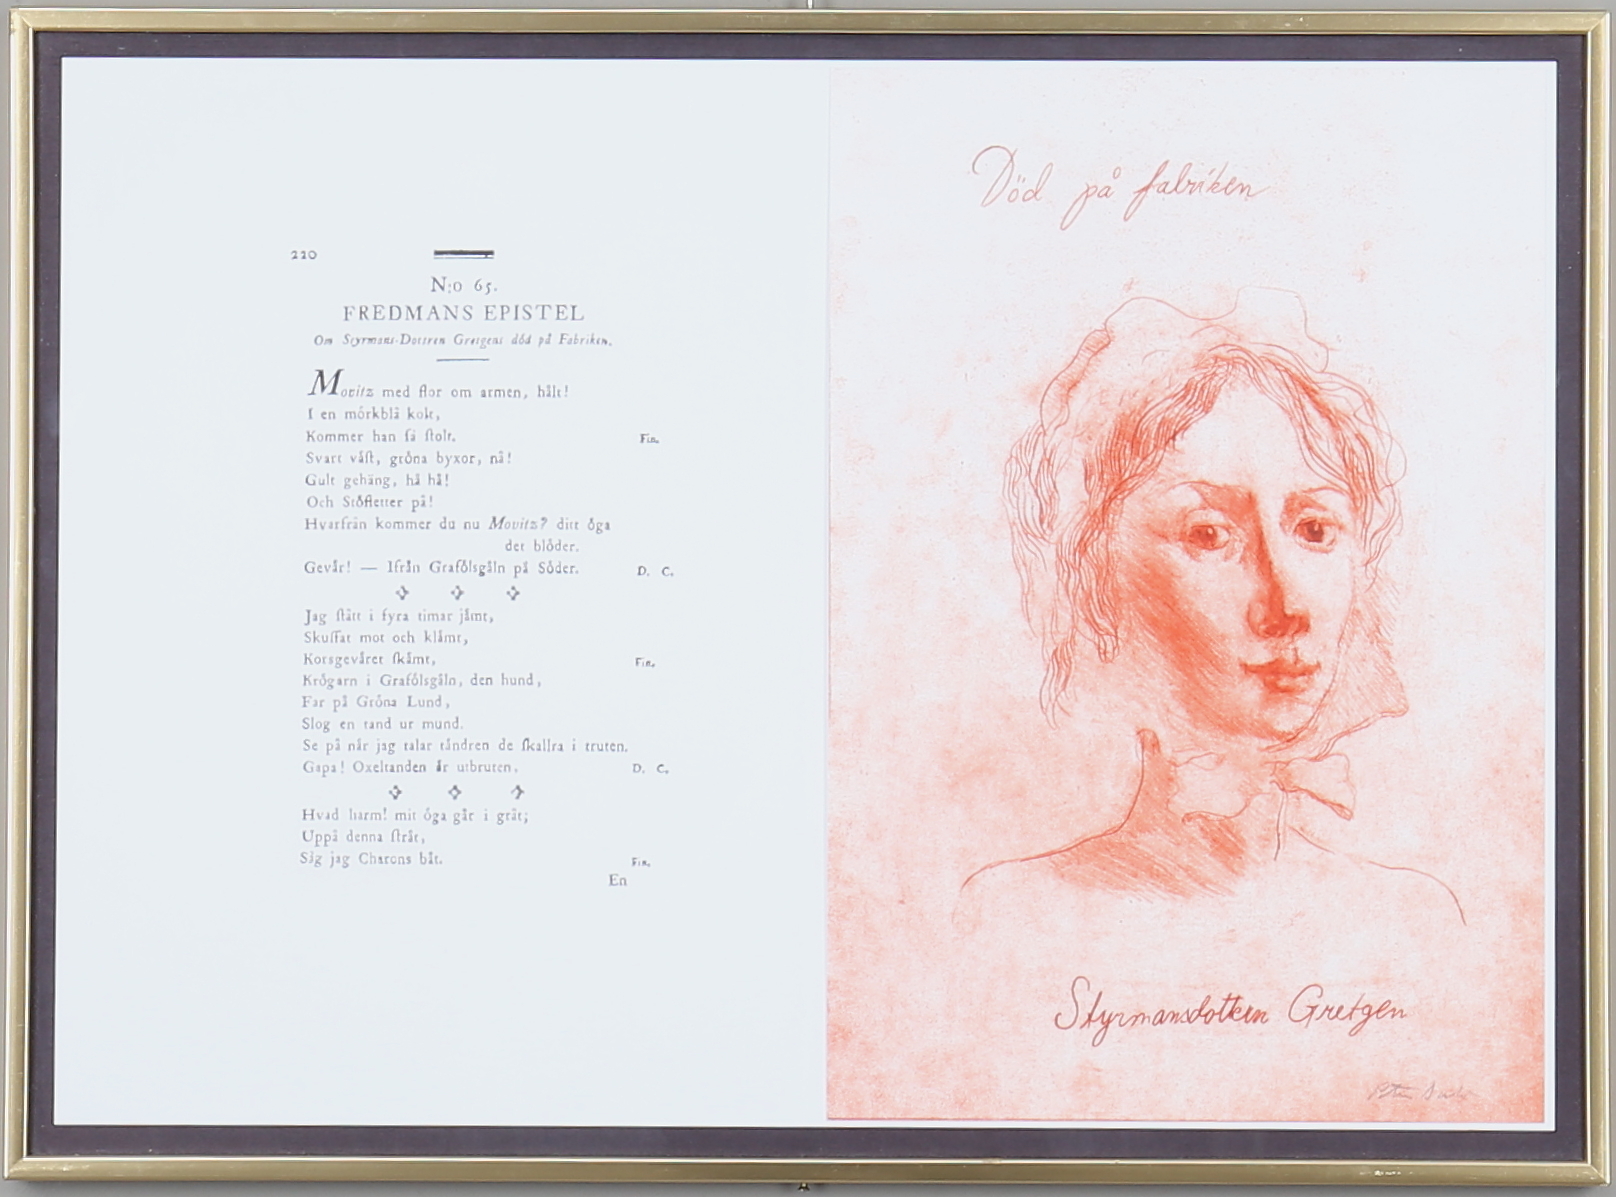 220
N:o 65.
FREDMANS EPISTEL
Om Styrmans-Dottren Gretgens död på Fabriken.
Movitz med flor om armen, hålt!
I en mörkblå kolt,
Kommer han så ſtolt. Fin.
Svart våſt, gröna byxor, nå!
Gult gehäng, hå hå!
Och Stöfletter på!
Hvarfrån kommer du nu Movitz? ditt öga
det blöder.
Gevär! — Ifrån Grafölsgåln på Söder. D. C.
Jag ſtått i fyra timar jåmt,
Skuffat mot och klåmt,
Korsgevåret ſkåmt, Fin.
Krögarn i Grafölsgåln, den hund,
Far på Gröna Lund,
Slog en tand ur mund.
Se på når jag talar tåndren de ſkallra i truten.
Gapa! Oxeltanden är utbruten. D. C.
Hvad harm! mit öga går i gråt;
Uppå denna ſtråt,
Såg jag Charons båt. Fin.
En
Död på fabriken
Styrmansdottren Gretgen